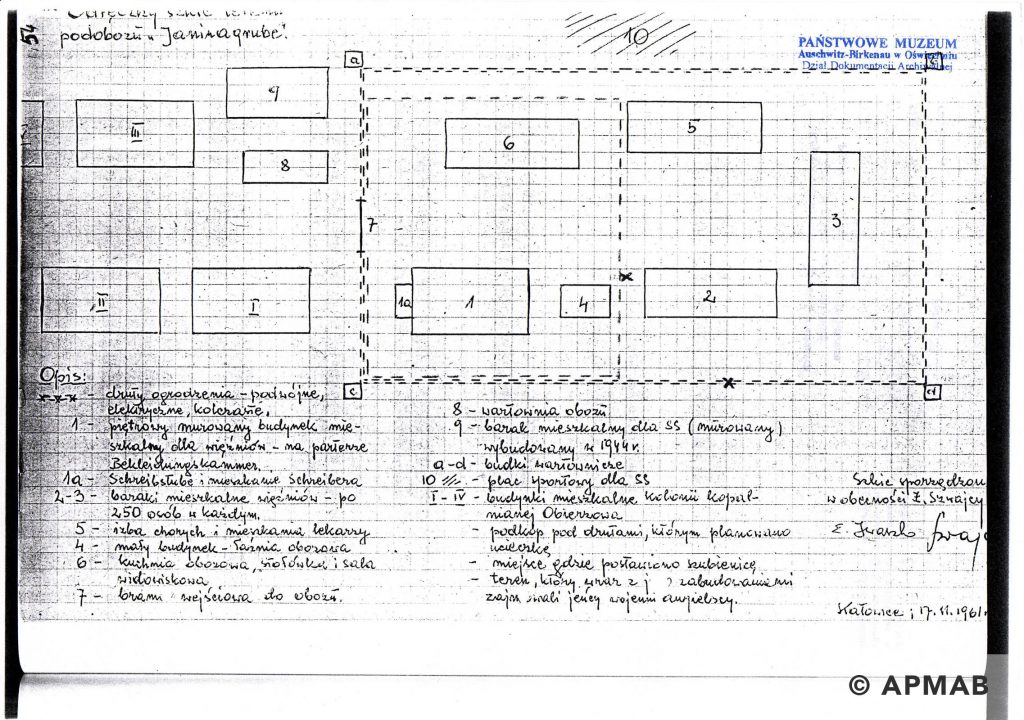 54
Odręczny szkic terenu
podobozu "Janinagrube".
10
PAŃSTWOWE MUZEUM
Auschwitz-Birkenau w Oświęcimiu
Dział Dokumentacji Archiwalnej
a
9
III
6
5
8
3
7
II
I
1a
1
4
2
c
d
Opis:
x-x-x - druty ogrodzenia - podwójne,
elektryczne, kolczaste.
1 - piętrowy murowany budynek mie-
szkalny dla więźniów - na parterze
Bekleidungskammer.
1a - Schreibstube i mieszkanie Schreibera
2-3 - baraki mieszkalne więźniów - po
250 osób w każdym.
5 - izba chorych i mieszkania lekarzy
4 - mały budynek - łaźnia obozowa
6 - kuchnia obozowa, stołówka i sala
widowiskowa
7 - brama wejściowa do obozu.
8 - wartownia obozu
9 - barak mieszkalny dla SS (murowany)
wybudowany w 1944 r.
a-d - budki wartownicze
10 - plac sportowy dla SS
I-IV - budynki mieszkalne Kolonii Kopal-
nianej Obieżowa
- podkop pod drutami, którym planowano
ucieczkę
- miejsce gdzie postawiono szubienicę
- teren, który wraz z zabudowaniami
jeńcy wojenni angielscy.
Szkic sporządzono
w obecności
E. Iwaszko
Katowice, 17.11.1961
© APMAB